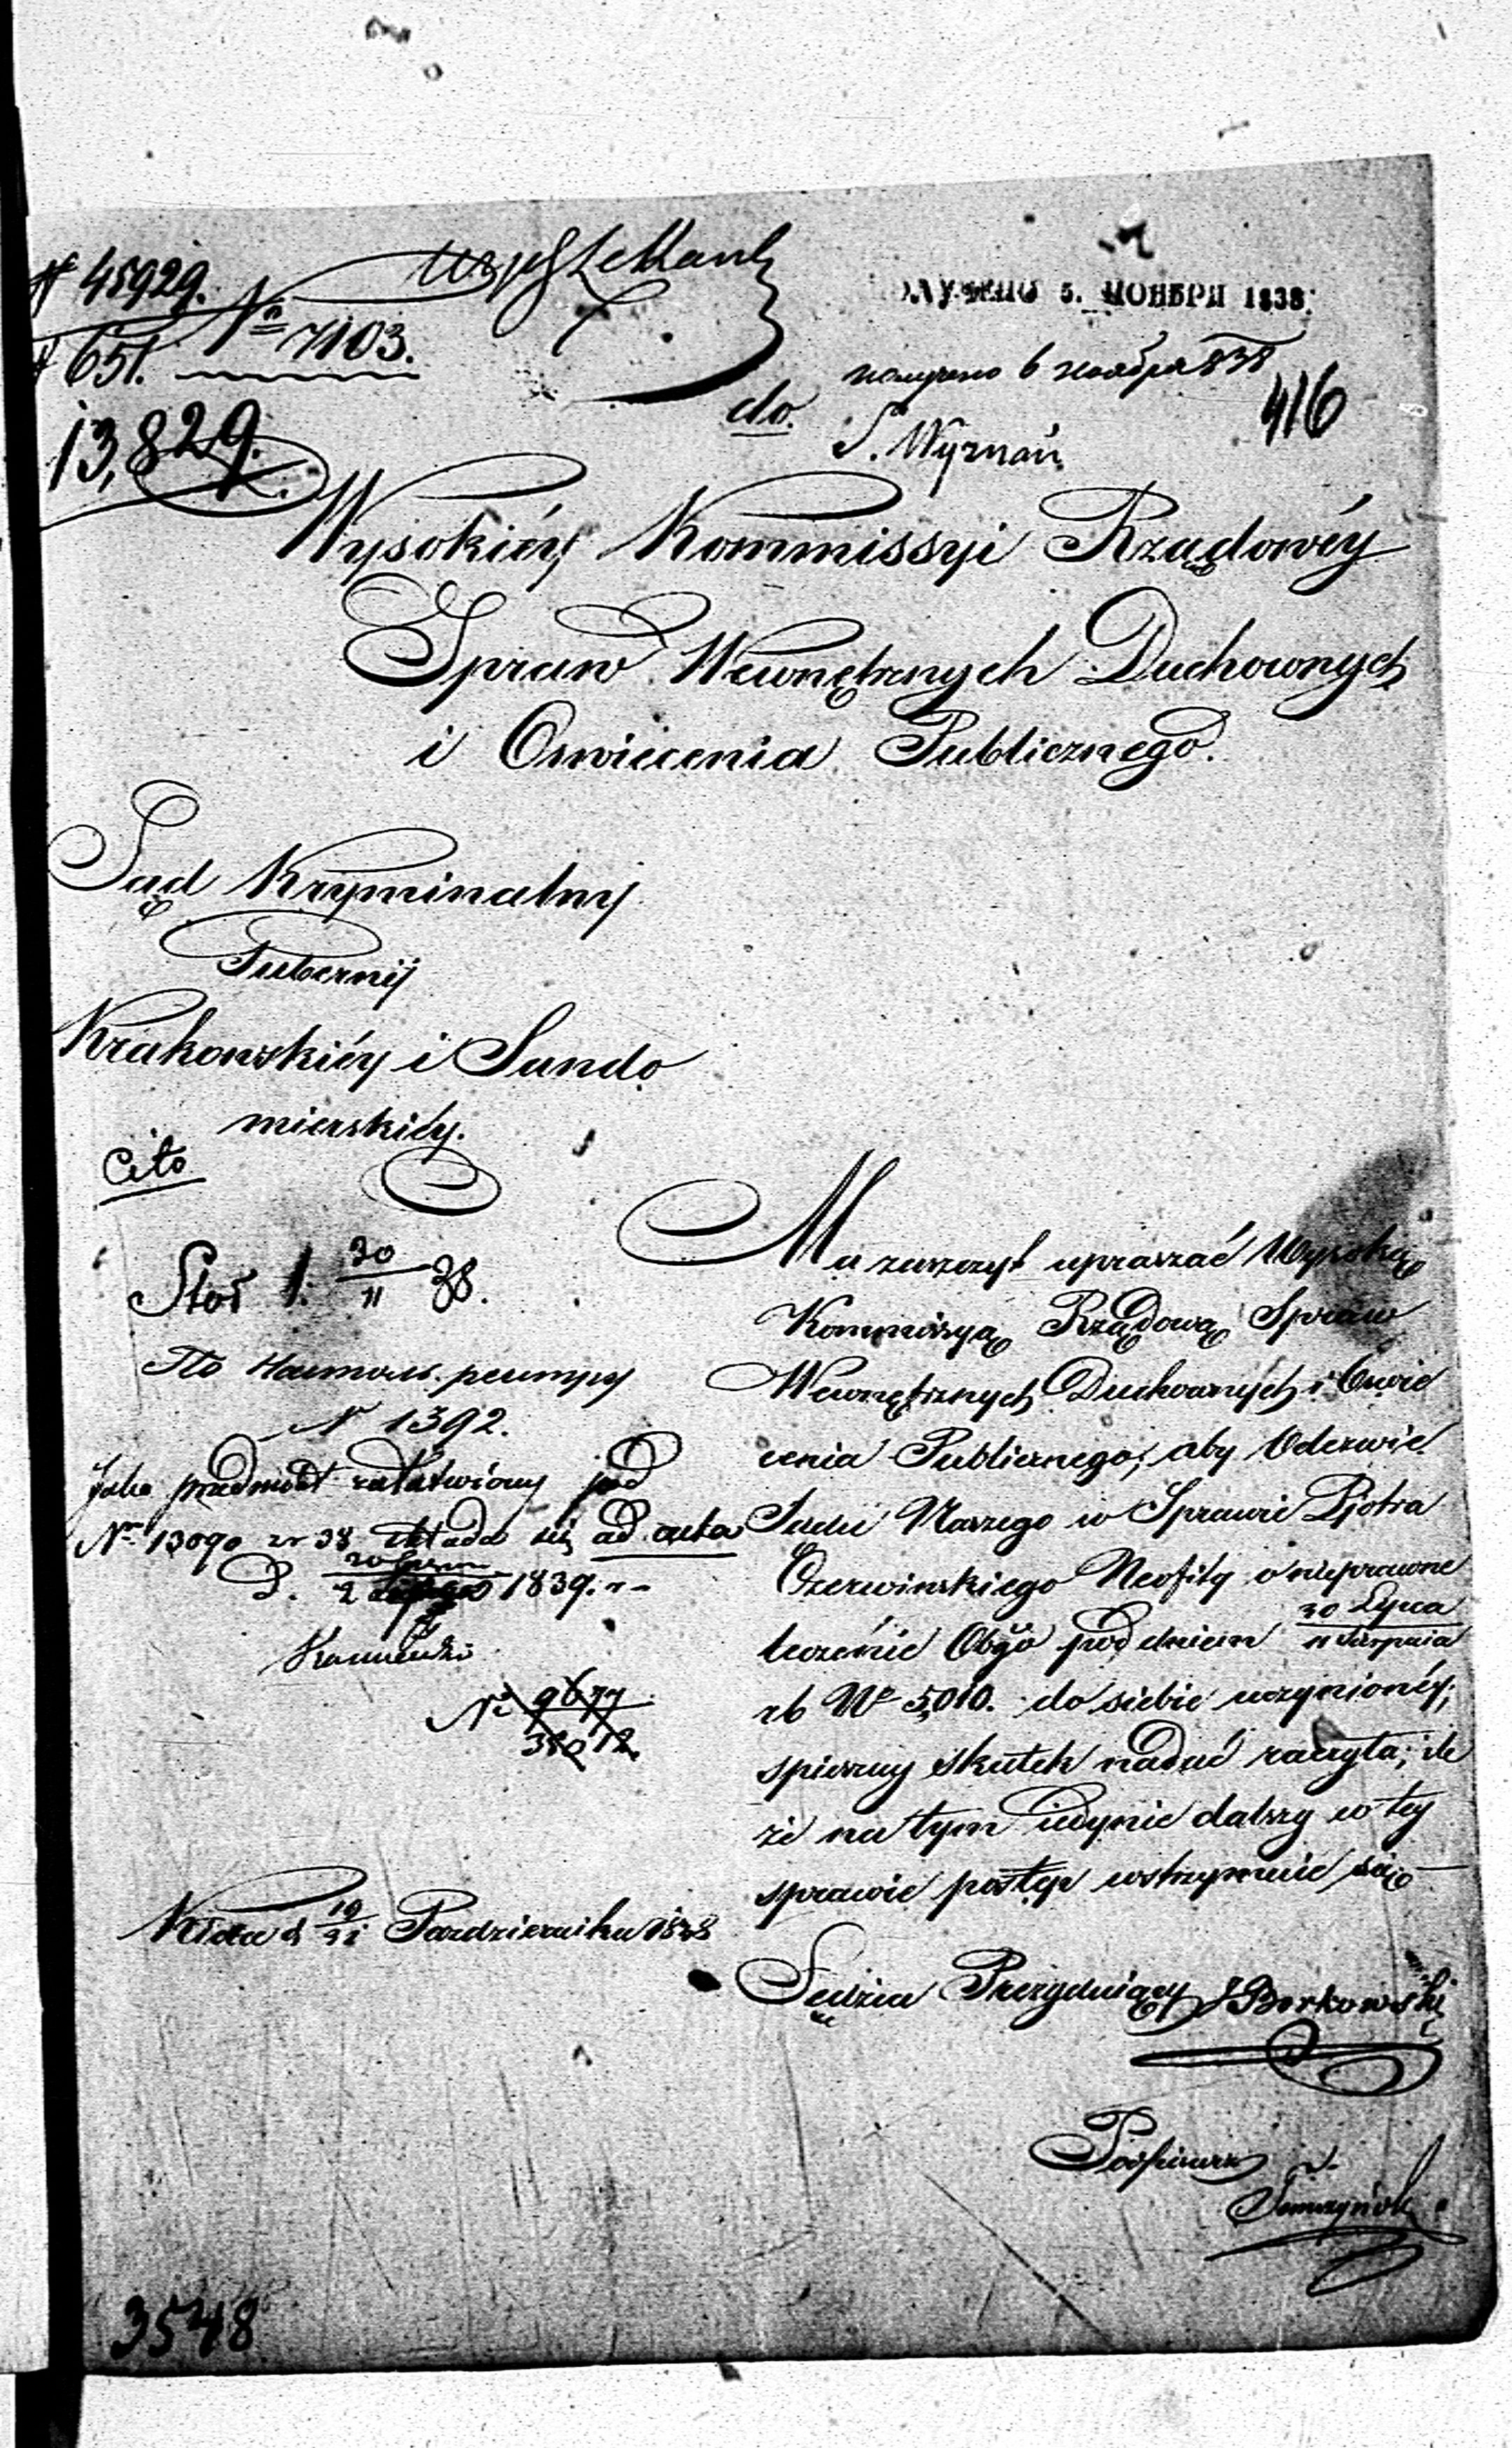 № 45929.
№ 7103.
651.
13,829.
5. НОЯБРЯ 1838.
получено 6 ноября 838
416
do
S. Wyznań
Wysokiéy Kommissyi Rządowéy
Spraw Wewnętrznych Duchownych
i Oswiecenia Publicznego.
Sąd Kryminalny
Gubernij
Krakowskiéy i Sando
mierskiéy.
Cito
Stoł 1. 30/11 38.
N 1392.
Jako przedmiot załatwiony pod
Nr 13090 z r 38 składa się ad acta
D. 1839. r
No 9677
38012.
Ma zaszczyt upraszać Wysoką
Kommissyą Rządową Spraw
Wewnętrznych Duchownych i Oswie
cenia Publicznego, aby Odezwie
Sądu Naszego w Sprawie Piotra
Czerwinskiego Neofity o nieprawne
leczenie Obgo pod dniem 30 Lipca / 11 Sierpnia
rb No 5,010. do siebie uczynionéy,
spieszny skutek nadać raczyła; ile
że na tym iedynie dalszy w tey
sprawie postęp wstrzymuie się
d 19/31 Pazdziernika 1838
Sędzia Prezyduiący J Borkowski
Podpisarz
3548